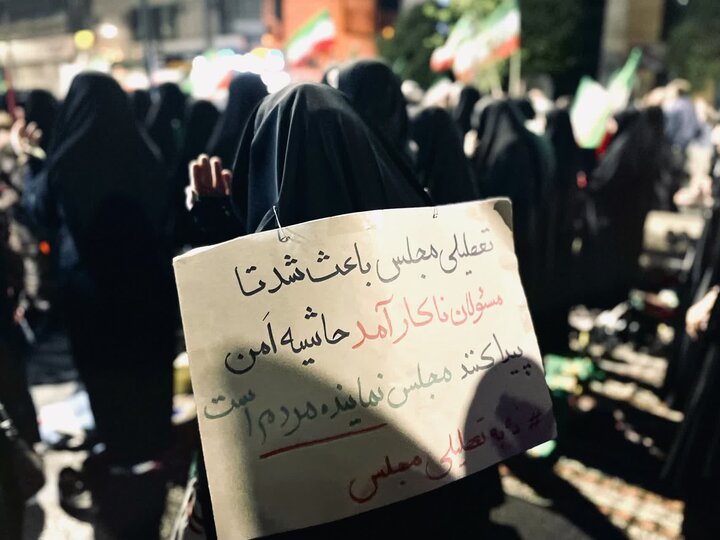 تعطیلی مجلس باعث شد تا
مسئولان ناکارآمد حاشیه اَمن
پیدا کنند مجلس نماینده مردم است
#نه به تعطیلی مجلس